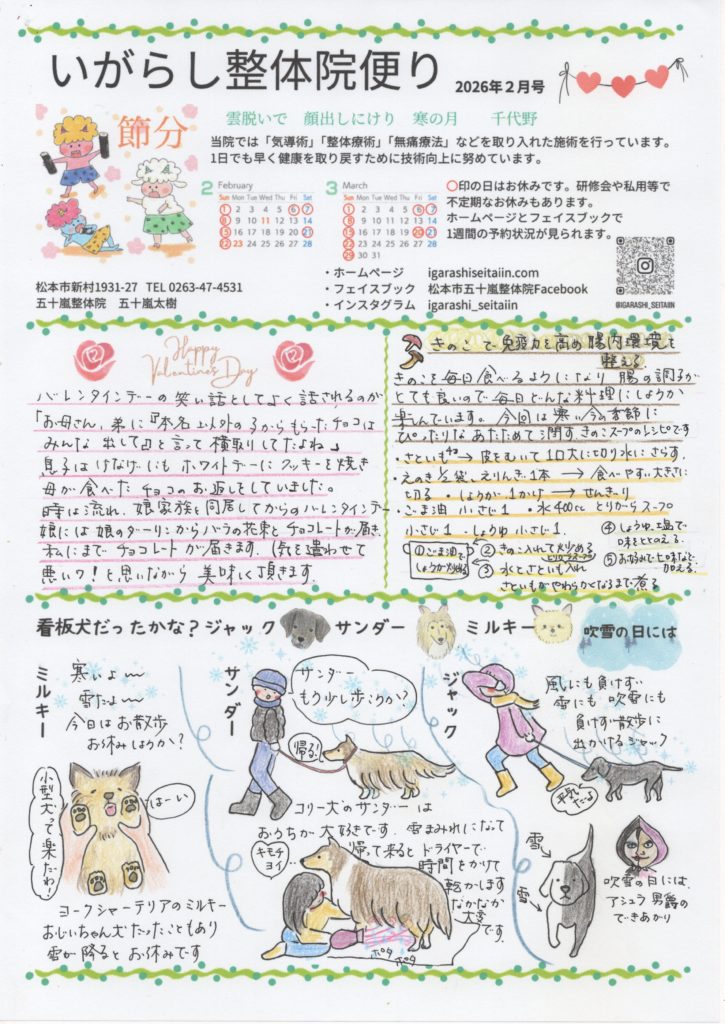 いがらし整体院便り
2026年2月号
節分
雲脱いで　顔出しにけり　寒の月　　千代野
当院では「気導術」「整体療術」「無痛療法」などを取り入れた施術を行っています。
1日でも早く健康を取り戻すために技術向上に努めています。
2 February
Sun Mon Tue Wed Thu Fri Sat
1 2 3 4 5 6 7
8 9 10 11 12 13 14
15 16 17 18 19 20 21
22 23 24 25 26 27 28
3 March
Sun Mon Tue Wed Thu Fri Sat
1 2 3 4 5 6 7
8 9 10 11 12 13 14
15 16 17 18 19 20 21
22 23 24 25 26 27 28
29 30 31
○印の日はお休みです。研修会や私用等で
不定期なお休みもあります。
ホームページとフェイスブックで
1週間の予約状況が見られます。
@IGARASHI_SEITAIIN
・ホームページ　igarashiseitaiin.com
・フェイスブック　松本市五十嵐整体院Facebook
・インスタグラム　igarashi_seitaiin
松本市新村1931-27　TEL 0263-47-4531
五十嵐整体院　五十嵐太樹
Happy
Valentine's Day
バレンタインデーの笑い話としてよく話されるのが
「お母さん、弟に『本名以外の子からもらったチョコは
みんな出して』と言って横取りしてたよね」
息子はけなげにもホワイトデーにクッキーを焼き
母が食べたチョコのお返しをしていました。
時は流れ、娘家族と同居してからのバレンタインデー
娘には娘のダーリンからバラの花束とチョコレートが届き、
私にまでチョコレートが届きます。(気を遣わせて
悪いワ！と思いながら美味しく頂きます
きのこで免疫力を高め腸内環境を
整える
きのこを毎日食べるようになり腸の調子が
とても良いので毎日どんな料理にしようか
楽しんでいます。今回は寒い今の季節に
ぴったりなあたためて潤すきのこスープのレシピです
・さといも4つ→皮をむいて1口大に切り水にさらす。
・えのき1/2袋、えりんぎ1本→食べやすい大きさに
切る・しょうが1かけ→せんぎり
・ごま油 小さじ1 ・水400cc とりがらスープ
小さじ1 ・しょうゆ小さじ1
①ごま油で
しょうが炒める
②きのこ入れて炒める
とりがらスープ
③水とさといも入れ
さといもがやわらかくなるまで煮る
④しょうゆ、塩で
味をととのえる
⑤お好みで七味など
加える。
看板犬だったかな？ジャック　サンダー　ミルキー　吹雪の日には
ミルキー
寒いよ〜
雪だよ〜
今日はお散歩
お休みしようか？
はーい
小型犬って楽だわ！
ヨークシャーテリアのミルキー
おじいちゃん犬だったこともあり
雪が降るとお休みです
サンダー
サンダー
もう少し歩こうか？
帰る！
コリー犬のサンダーは
おうちが大好きです。雪まみれになって
帰って来るとドライヤーで
時間をかけて
乾かします
なかなか
大変
です。
キモチ
ヨイ…
ポタ
ポタ
ジャック
風にも負けず
雪にも吹雪にも
負けず散歩に
出かけるジャック
平気
だよ
雪
雪
吹雪の日には、
アシュラ男爵の
できあがり